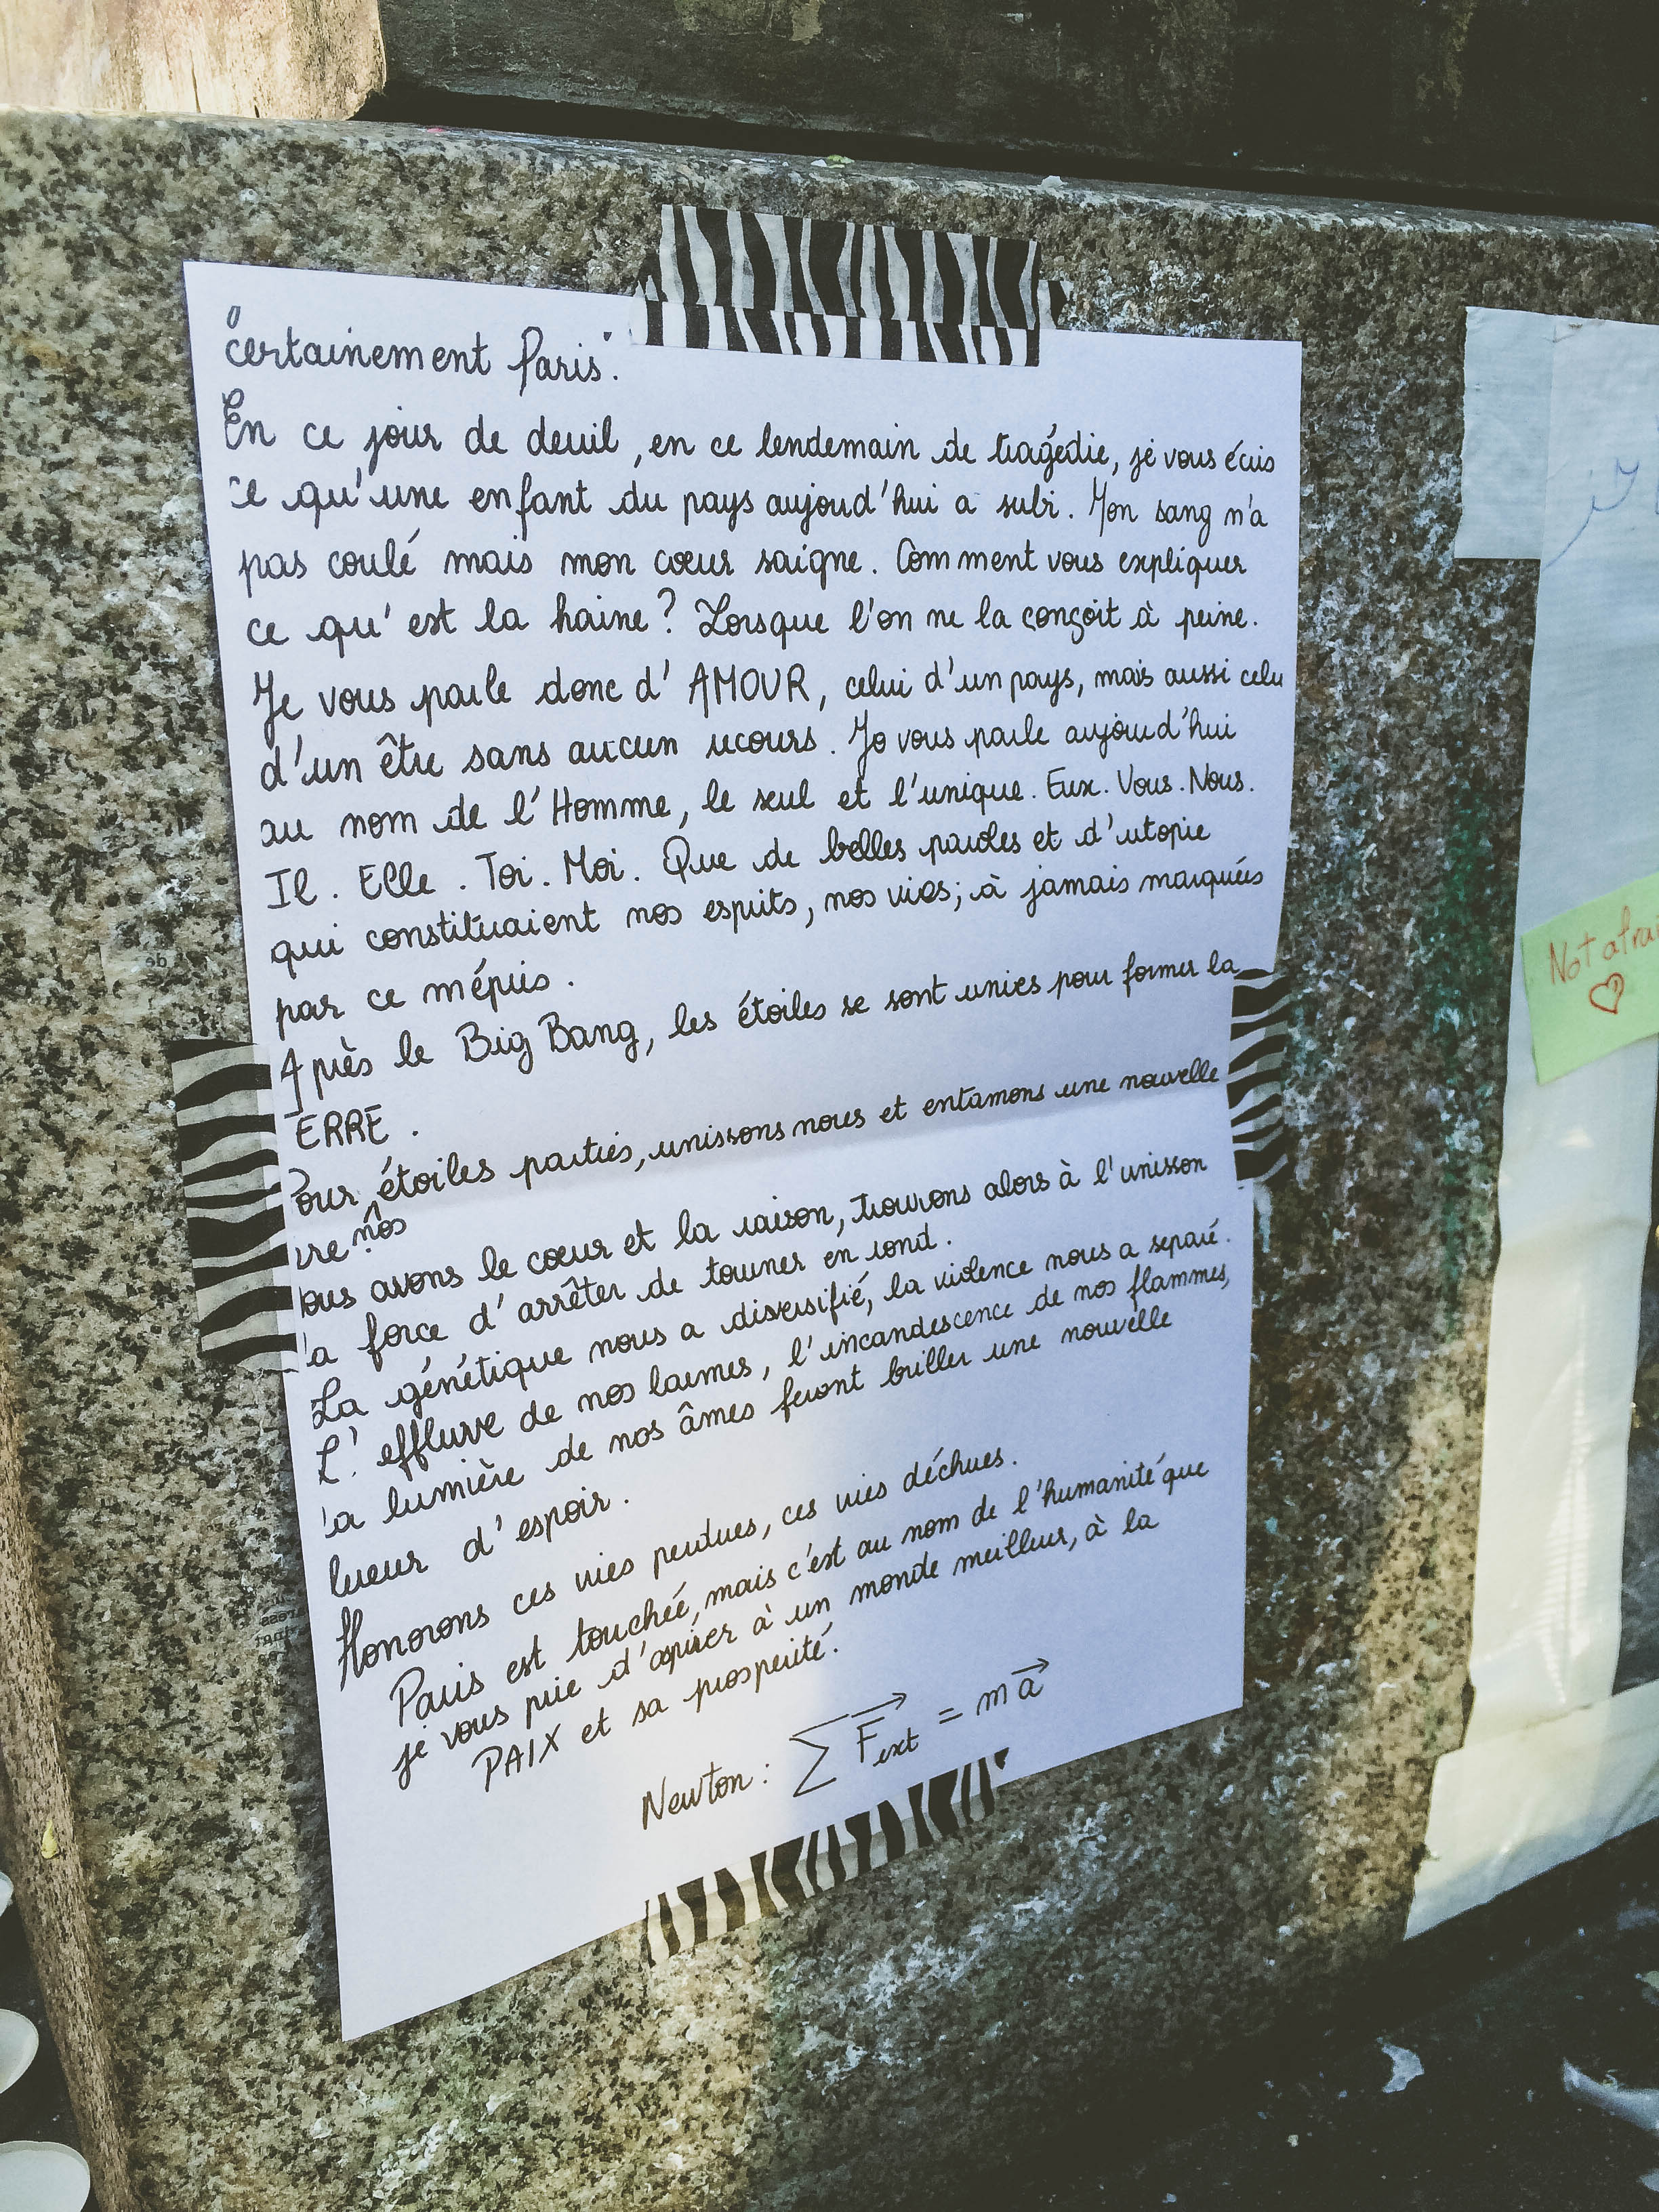 "certainement Paris".
En ce jour de deuil, en ce lendemain de tragédie, je vous écris
ce qu'une enfant du pays aujourd'hui a subi. Mon sang n'a
pas coulé mais mon cœur saigne. Comment vous expliquer
ce qu'est la haine? Lorsque l'on ne la conçoit à peine.
Je vous parle donc d'AMOUR, celui d'un pays, mais aussi celui
d'un être sans aucun recours. Je vous parle aujourd'hui
au nom de l'Homme, le seul et l'unique. Eux. Vous. Nous.
Il. Elle. Toi. Moi. Que de belles paroles et d'utopie
qui constituaient nos esprits, nos vies; à jamais marqués
par ce mépris.
Après le Big Bang, les étoiles se sont unies pour former la
TERRE.
Pour nos étoiles parties, unissons nous et entamons une nouvelle
ère
Nous avons le cœur et la raison, trouvons alors à l'unisson
la force d'arrêter de tourner en rond.
La génétique nous a diversifié, la violence nous a separé.
L'effluve de nos larmes, l'incandescence de nos flammes,
la lumière de nos âmes feront briller une nouvelle
lueur d'espoir.
Honorons ces vies perdues, ces vies déchues.
Paris est touchée, mais c'est au nom de l'humanité que
je vous prie d'aspirer à un monde meilleur, à la
PAIX et sa prosperité.
Newton: ∑ F⃗ext = m a⃗
Not afrai